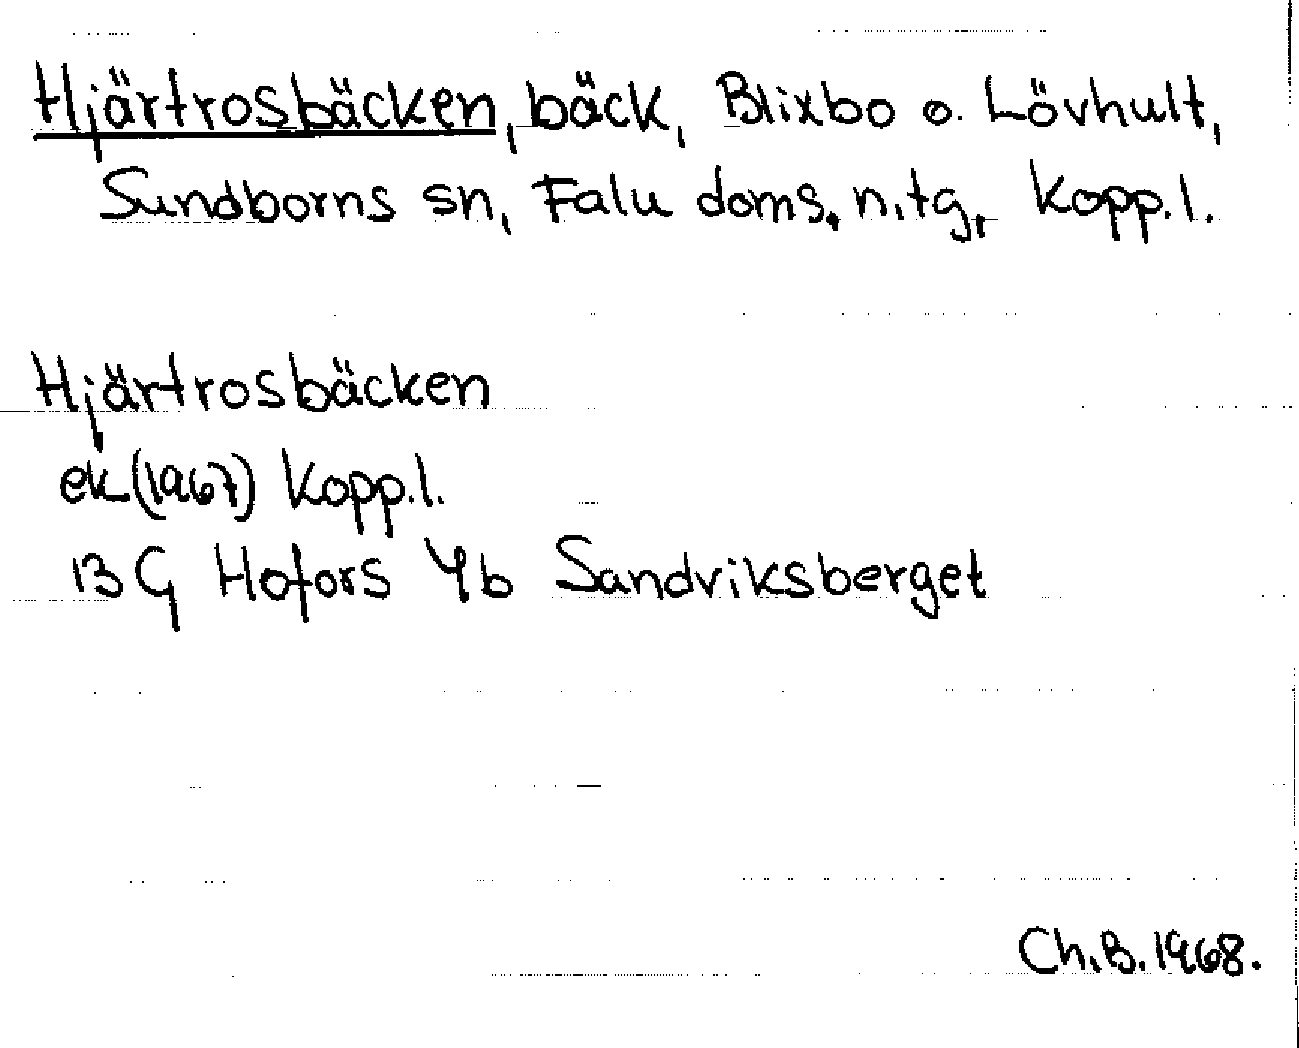 Hjärtrosbäcken, bäck, Blixbo o. Lövhult,
Sundborns sn, Falu doms. n. tg, Kopp. l.
Hjärtrosbäcken
ek (1967) Kopp. l.
13 G Hofors 4b Sandviksberget
Ch. B. 1968.